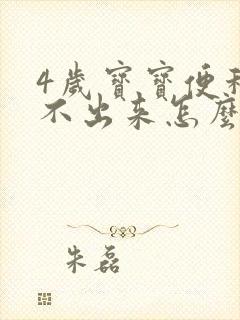 4歲寶寶便秘
不出来怎麼
朱磊